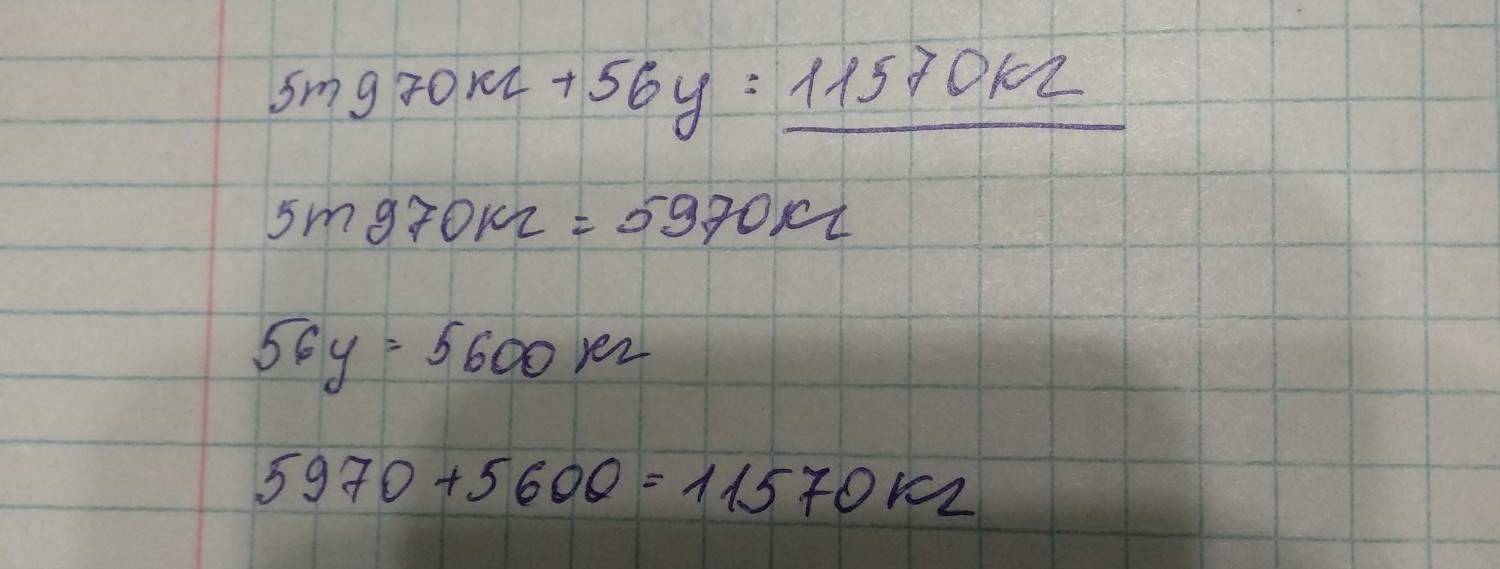 5т970кг + 56ц = 11570кг
5т970кг = 5970кг
56ц = 5600 кг
5970 + 5600 = 11570 кг